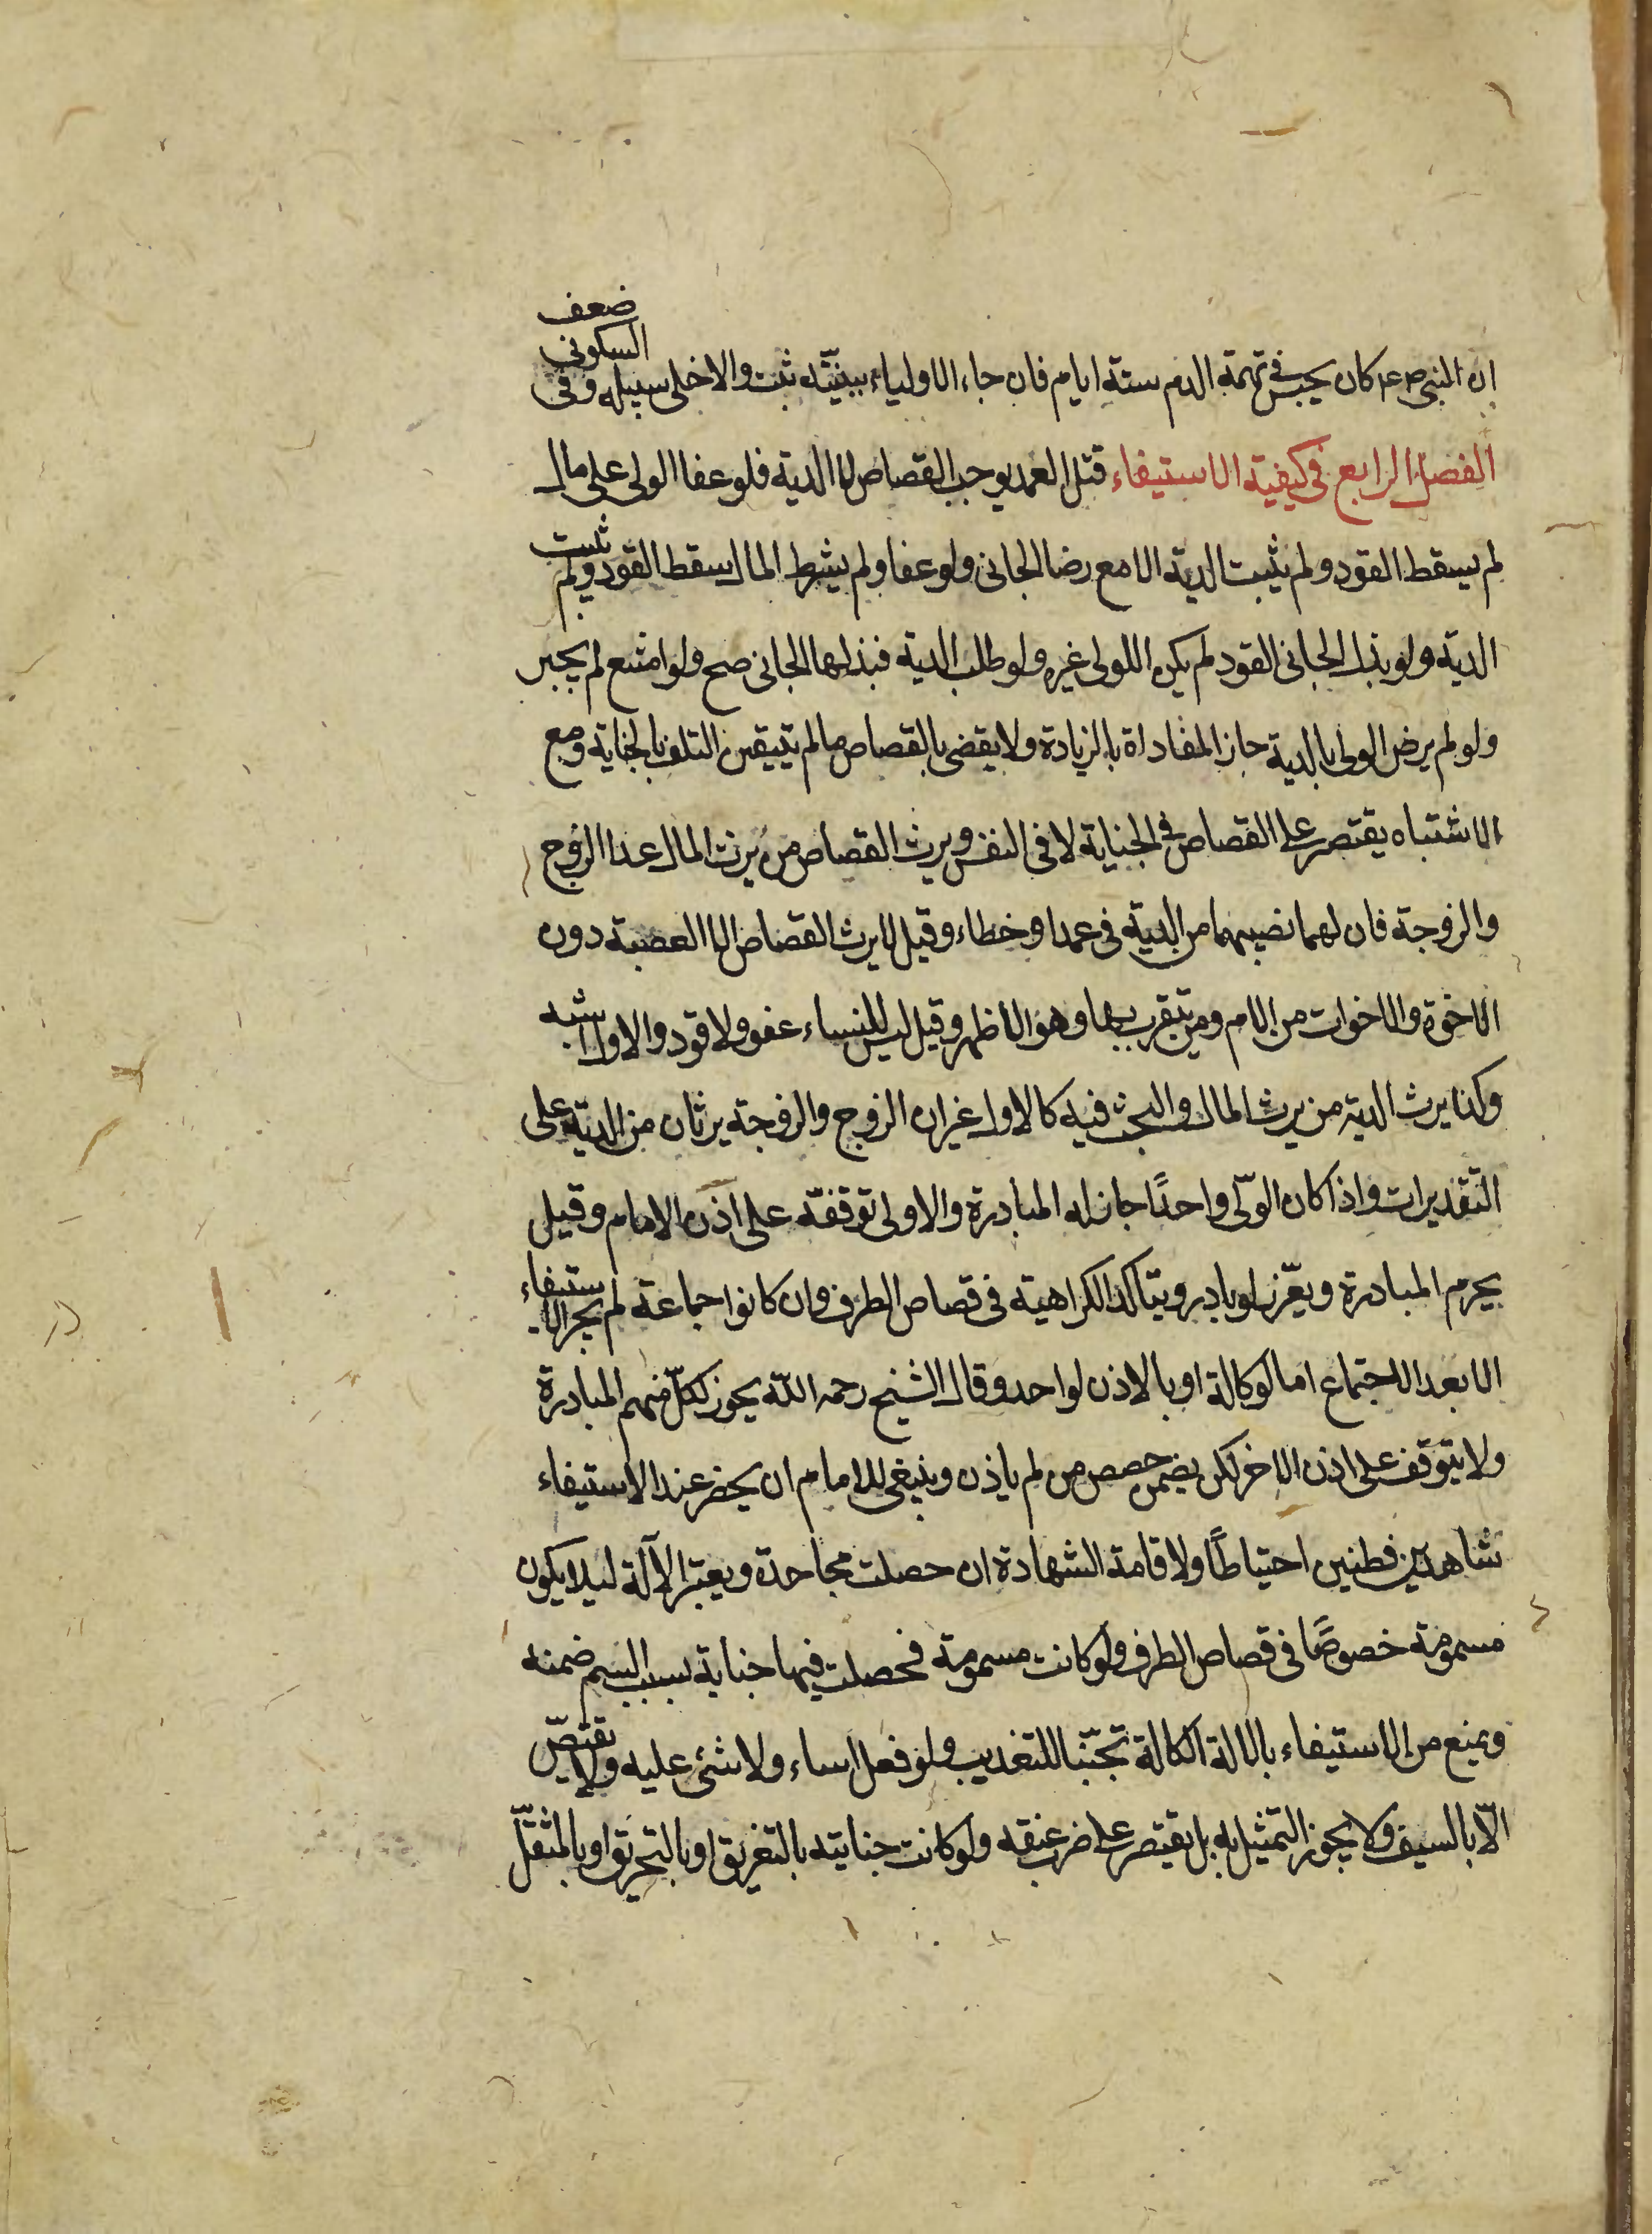 ان النبى ص ع م كان يحبس فى تهمة الدم ستة ايام فان جاء الاولياء ببينّة ثبت والا خلى سبيله وفى السكونى ضعف
الفصل الرابع فى كيفية الاستيفاء قتل العمد يوجب القصاص لا الدية فلو عفا الولى على مال
لم يسقط القود ولم يثبت الدية الا مع رضا الجانى ولو عفا ولم يشرط المال سقط القود ولم يثبت
الدية ولو بذل الجانى القود لم يكن للولى غيره ولو طلب الدية فبذلها الجانى صح ولو امتنع لم يجبر
ولو لم يرض الولى بالدية جاز المفاداة بالزيادة ولا يقضى بالقصاص ما لم يتيقن التلف بالجناية ومع
الاشتباه يقتصر على القصاص فى الجناية لا فى النفس ويرث القصاص من يرث المال عدا الزوج
والزوجة فان لهما نصيبهما من الدية فى عمد او خطاء وقيل لا يرث القصاص الا العصبة دون
الاخوة والاخوات من الام ومن يتقرب بها وهو الاظهر وقيل ليس للنساء عفو ولا قود والاول اشبه
وكذا يرث الدية من يرث المال والبحث فيه كالاول غير ان الزوج والزوجة يرثان من الدية على
التقديرات واذا كان الولّى واحدًا جاز له المبادرة والاولى توقفه على اذن الامام وقيل
يحرم المبادرة ويعزّر لو بادر ويتاكد الكراهية فى قصاص الطرف وان كانوا جماعة لم يجز الاستيفاء
الا بعد الاجتماع اما لوكالة او بالاذن لواحد وقال الشيخ رحمه اللّه يجوز لكلّ منهم المبادرة
ولا يتوقف على اذن الاخر لكن يضمن حصص من لم ياذن وينبغى للامام ان يحضر عند الاستيفاء
شاهدين فطنين احتياطًا ولاقامة الشهادة ان حصلت مجاحدة ويعتبر الآلة ليلا يكون
مسمومة خصوصًا فى قصاص الطرف ولو كانت مسمومة فحصلت فيها جناية بسبب السم ضمنه
ويمنع من الاستيفاء بالالة الكالة تجنّبا للتعذيب ولو فعل اساء ولا شئ عليه ولا يقتصّ
الّا بالسيف ولا يجوز التمثيل به بل يقتصر على ضرب عنقه ولو كانت جنايته بالتغريق او بالتحريق او بالمثقلّ